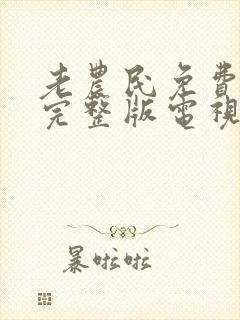 老農民免費
完整版電視
暴啦啦